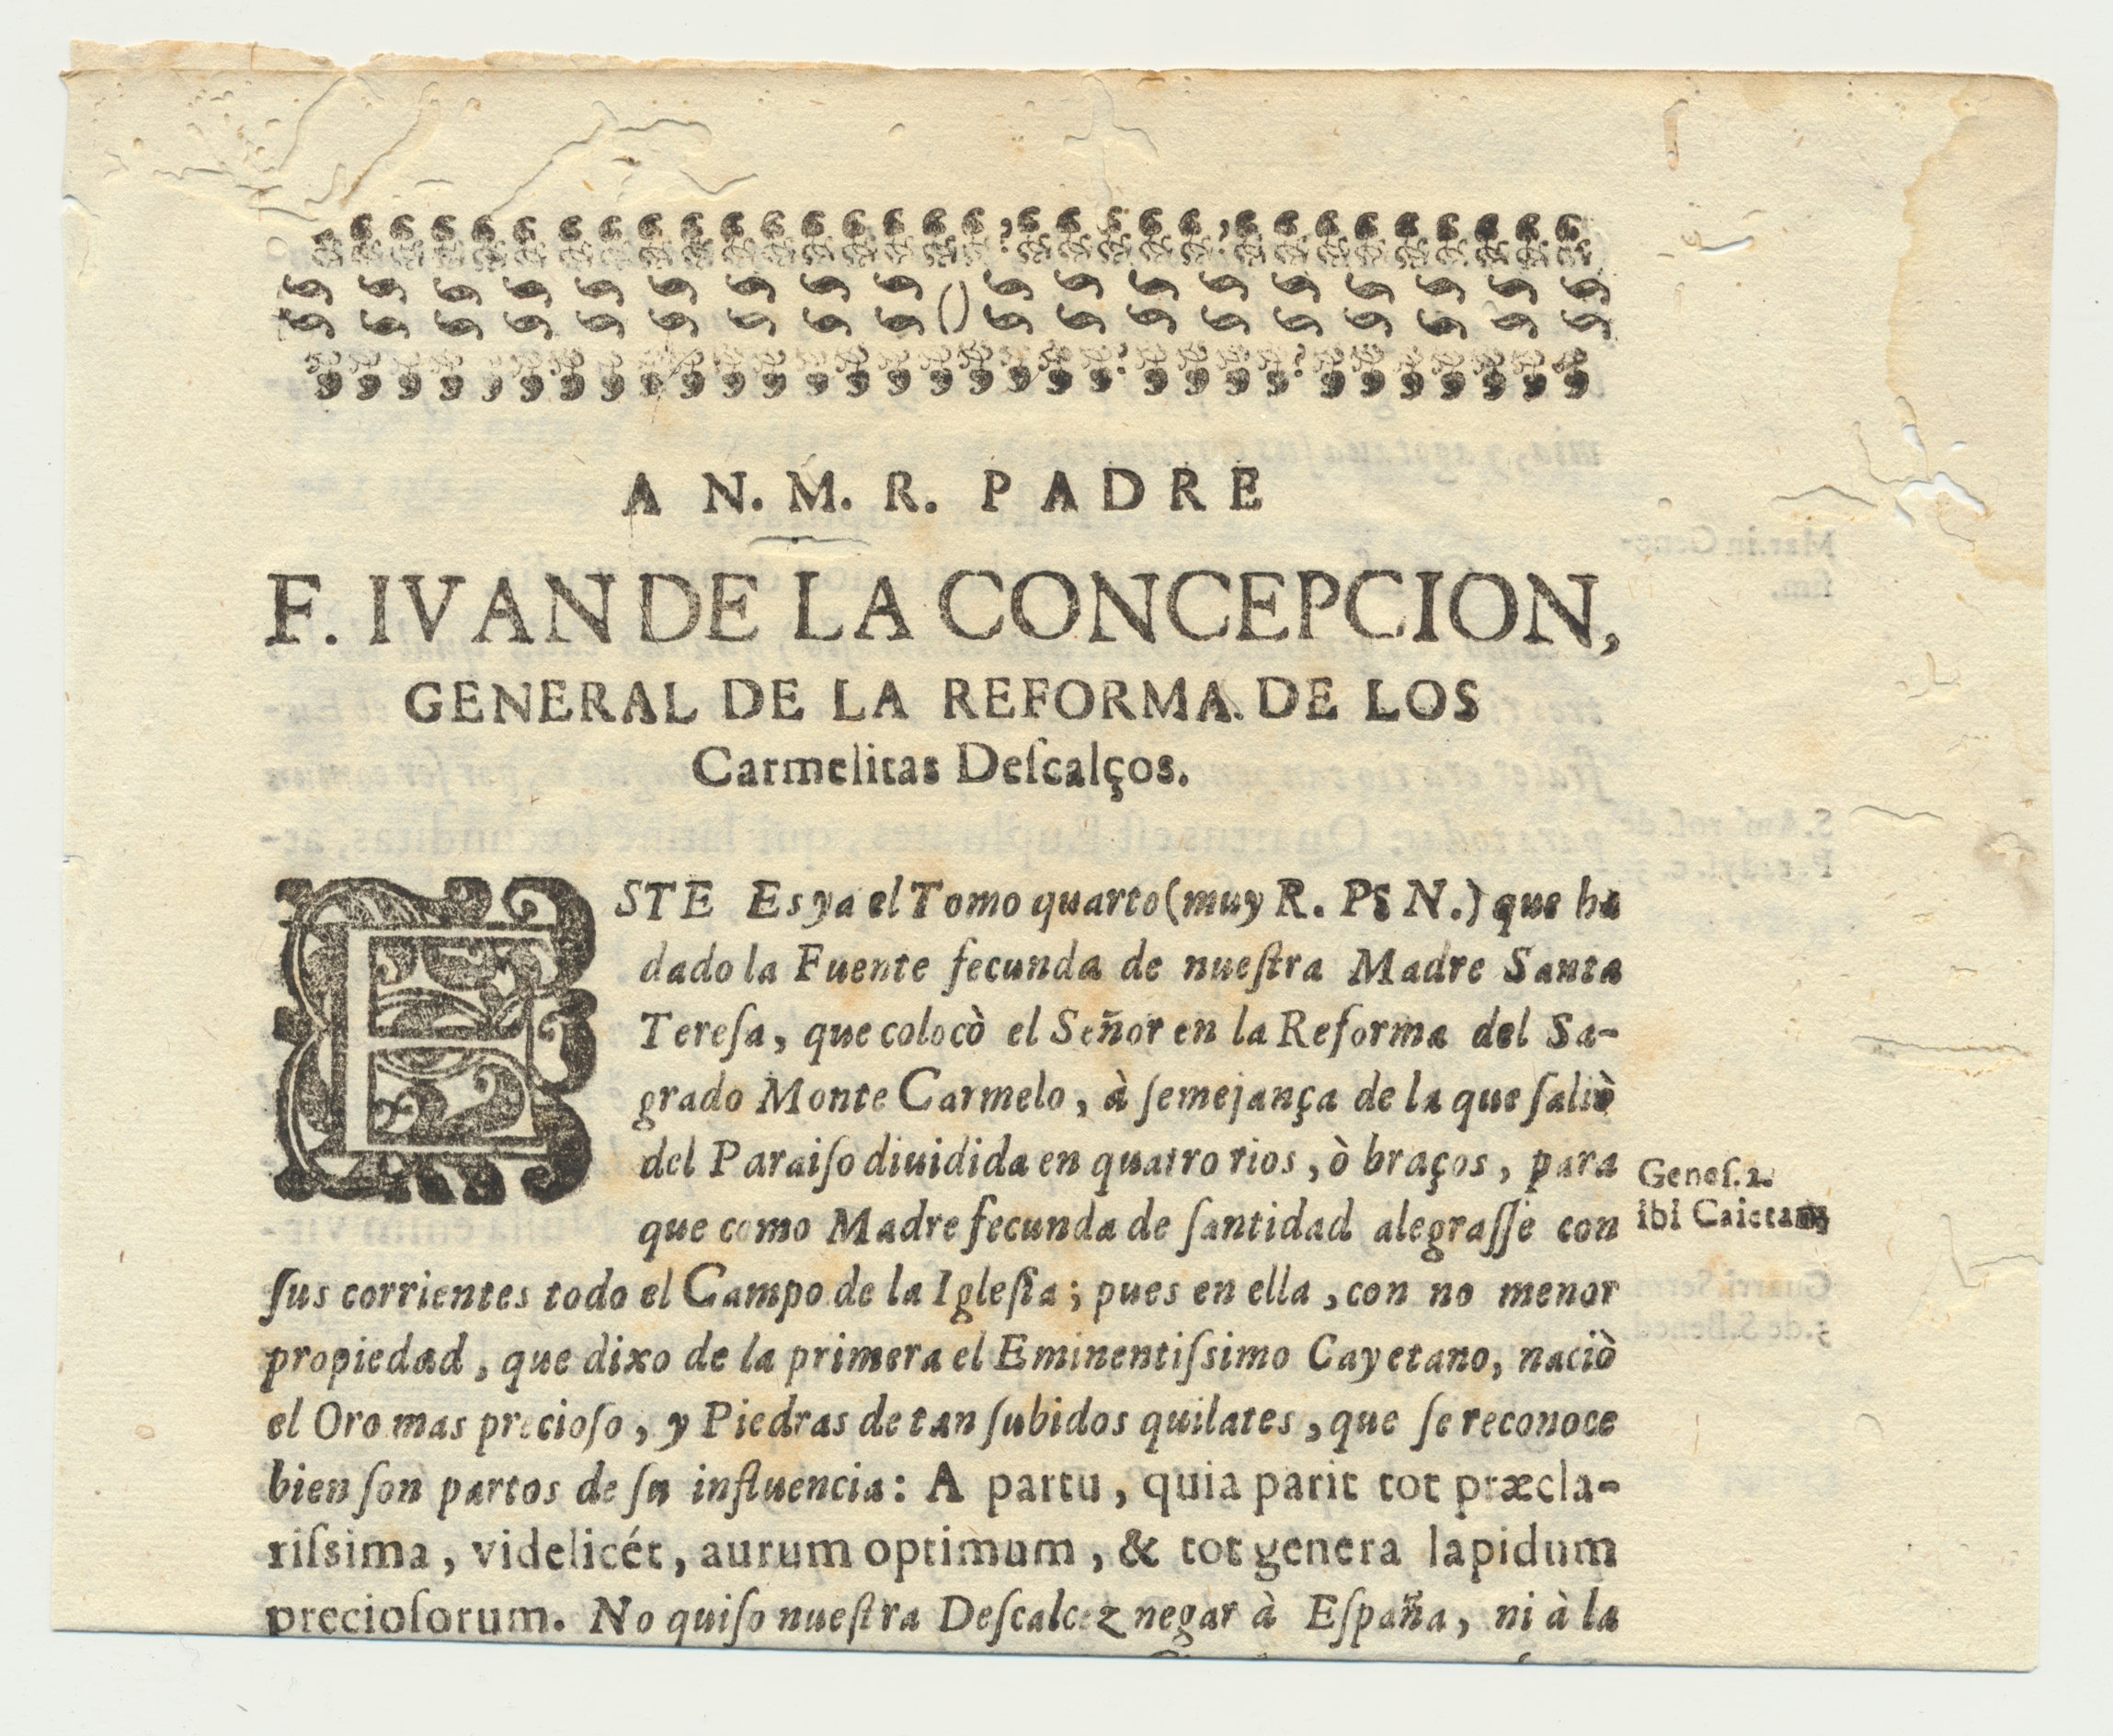 A N. M. R. PADRE
F. IVAN DE LA CONCEPCION,
GENERAL DE LA REFORMA. DE LOS
Carmelitas Deſcalços.
ESTE Es ya el Tomo quarto (muy R. P. N.) que ha
dado la Fuente fecunda de nueſtra Madre Santa
Tereſa, que colocò el Señor en la Reforma del Sa-
grado Monte Carmelo, à ſemejança de la que ſaliò
del Paraiſo diuidida en quatro rios, ò braços, para
Geneſ. 2.
que como Madre fecunda de ſantidad alegraſſe con
ibi Caietan
ſus corrientes todo el Campo de la Igleſia; pues en ella, con no menor
propiedad, que dixo de la primera el Eminentiſsimo Cayetano, naciò
el Oro mas precioſo, y Piedras de tan ſubidos quilates, que ſe reconoce
bien ſon partos de ſu influencia: A partu, quia parit tot præcla-
riſsima, videlicét, aurum optimum, & tot genera lapidum
precioſorum. No quiſo nueſtra Deſcalcez negar à Eſpaña, ni à la